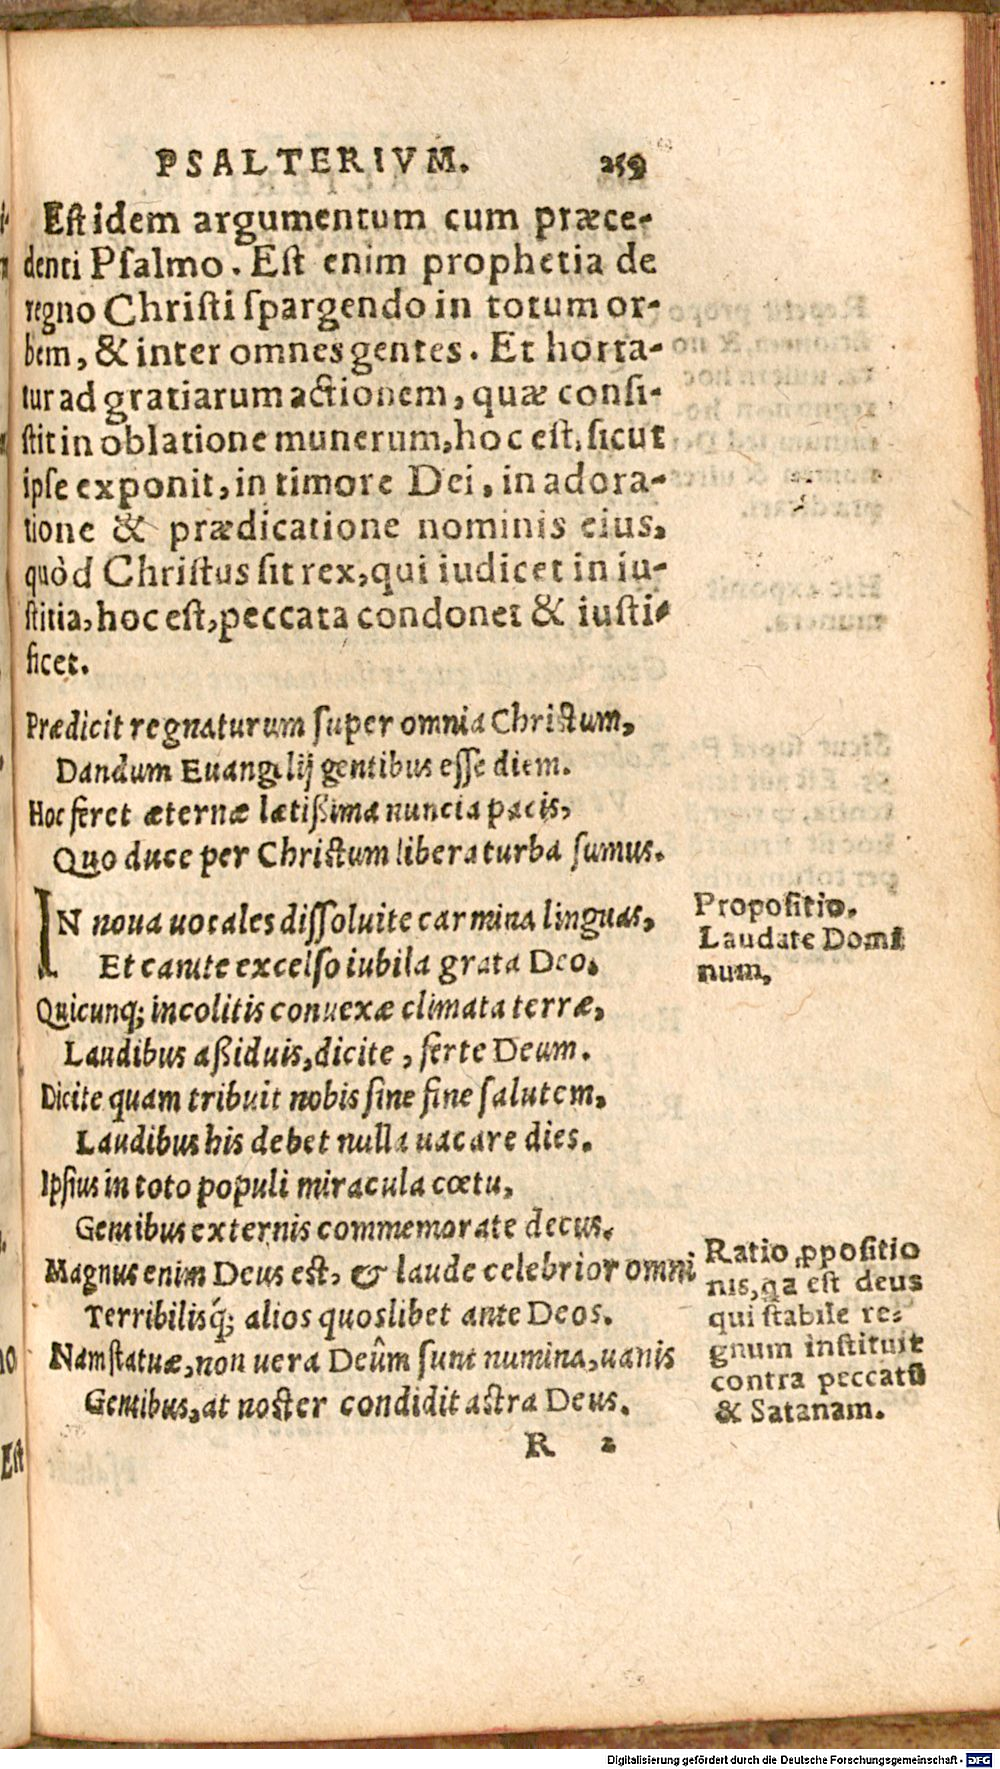 PSALTERIVM. 259
Est idem argumentum cum præce-
denti Psalmo. Est enim prophetia de
regno Christi spargendo in totum or-
bem, & inter omnes gentes. Et horta-
tur ad gratiarum actionem, quæ consi-
stit in oblatione munerum, hoc est, sicut
ipse exponit, in timore Dei, in adora-
tione & prædicatione nominis eius,
quòd Christus sit rex, qui iudicet in iu-
stitia, hoc est, peccata condonet & iusti-
ficet.
Prædicit regnaturum super omnia Christum,
Dandum Euangelij gentibus esse diem.
Hoc feret æternæ lætißima nuncia pacis,
Quo duce per Christum libera turba sumus.
IN noua uocales dissoluite carmina linguas,
Et canite excelso iubila grata Deo.
Quicunq; incolitis conuexæ climata terræ,
Laudibus aßiduis, dicite, ferte Deum.
Dicite quam tribuit nobis sine fine salutem,
Laudibus his debet nulla uacare dies.
Ipsius in toto populi miracula cœtu,
Gentibus externis commemorate decus.
Magnus enim Deus est, & laude celebrior omni
Terribilisq́; alios quoslibet ante Deos.
Nam statuæ, non uera Deûm sunt numina, uanis
Gentibus, at noster condidit astra Deus.
R 2
Propositio.
Laudate Domi
num,
Ratio ꝓpositio
nis, qa est deus
qui stabile re-
gnum instituit
contra peccatū
& Satanam.
Est